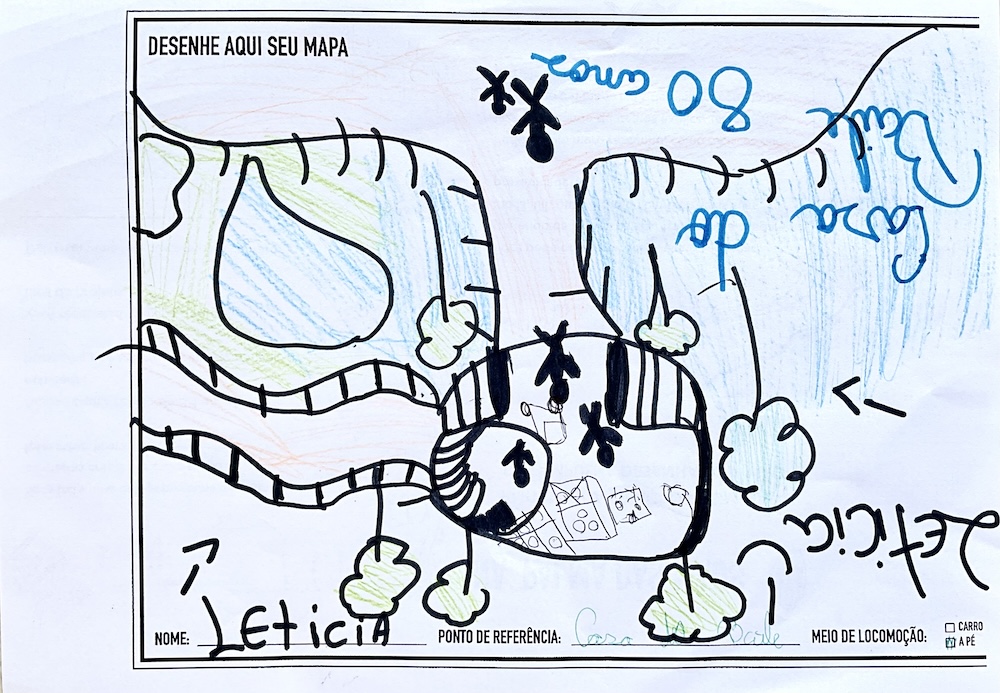 DESENHE AQUI SEU MAPA
LETICIA
Casa
do
Baile
80 anos
NOME: LEticiA
PONTO DE REFERÊNCIA: Casa Baile
MEIO DE LOCOMOÇÃO:
CARRO
A PÉ